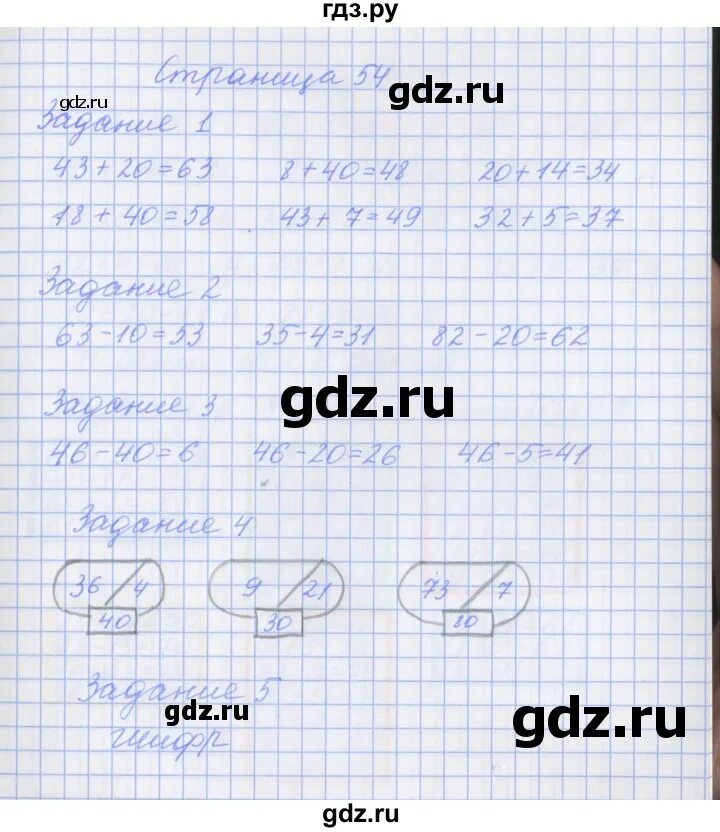 гдз.ру
Страница 54
gdz.ru
gdz.ru
Задание 1
43+20=63 8+40=48 20+14=34
18+40=58 43+7=49 32+5=37
Задание 2
63-10=53 35-4=31 82-20=62
gdz.ru
Задание 3
46-40=6 46-20=26 46-5=41
Задание 4
36 4 9 21 73 7
40 30 80
Задание 5
gdz.ru
gdz.ru
Шифр
gdz.ru